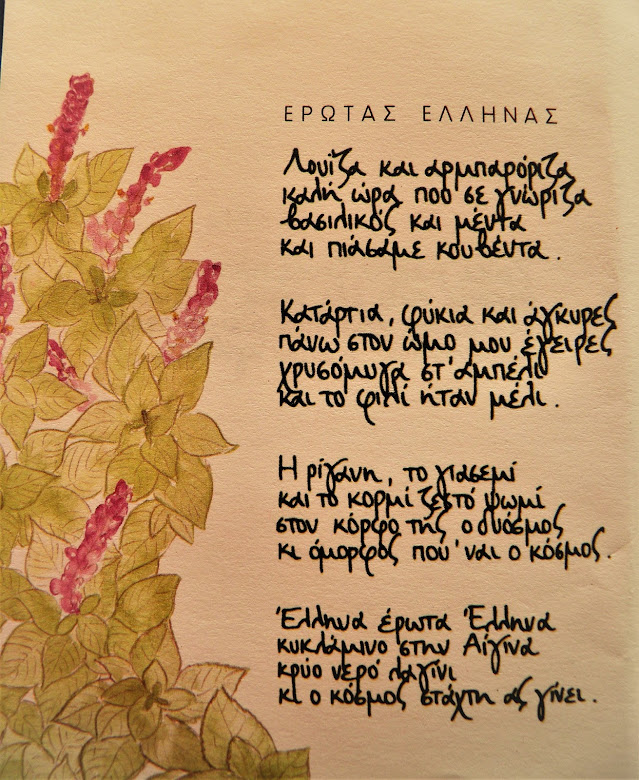 ΕΡΩΤΑΣ ΕΛΛΗΝΑΣ
Λουΐζα και αρμπαρόριζα
καλή ώρα που σε γνώριζα
βασιλικός και μέντα
και πιάσαμε κουβέντα.
Κατάρτια, φύκια και άγκυρες
πάνω στον ώμο μου έγειρες
χρυσόμυγα στ' αμπέλι
και το φιλί ήταν μέλι.
Η ρίγανη, το γιασεμί
και το κορμί ζεστό ψωμί
στον κόρφο της ο δυόσμος
κι όμορφος που 'ναι ο κόσμος.
Έλληνα έρωτα Έλληνα
κυκλάμινο στην Αίγινα
κρύο νερό λαγίνι
κι ο κόσμος στάχτη ας γίνει.